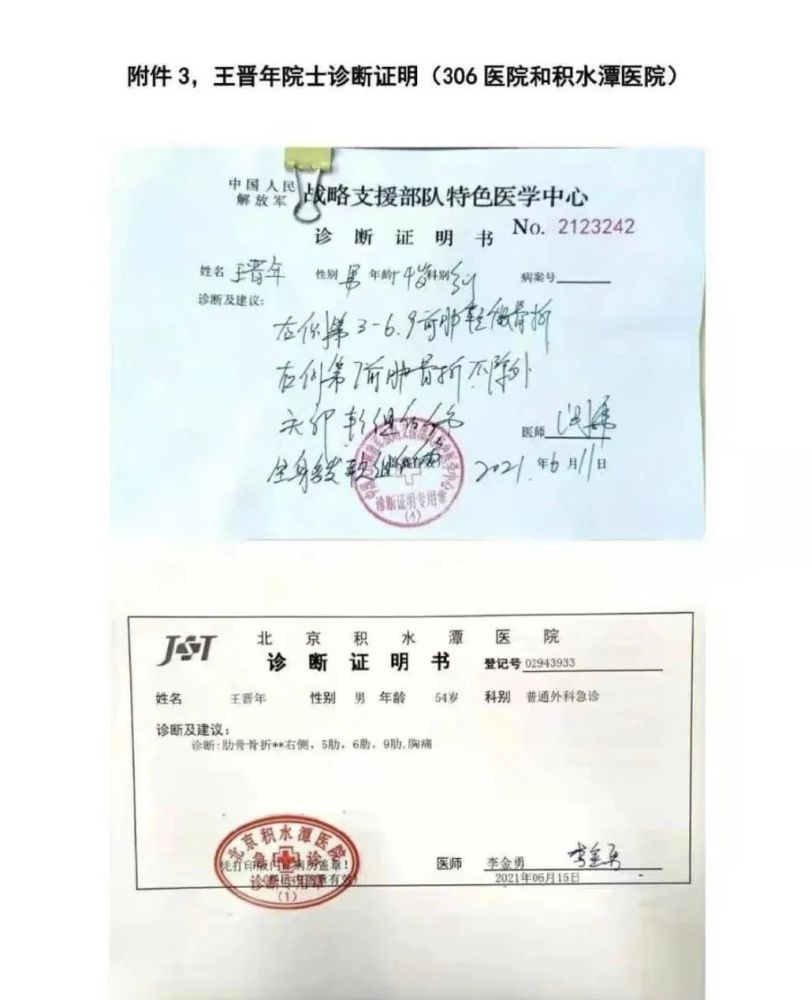 附件 3，王晋年院士诊断证明（306 医院和积水潭医院）
中国人民解放军 战略支援部队特色医学中心
诊断证明书 No. 2123242
姓名 王晋年 性别 男 年龄 54岁 科别 病案号
诊断及建议：
右侧第3-6.9前肋轻微骨折
右侧第7前肋骨折不除外
头部软组织伤
全身多发软组织
医师
2021.年6月11日
诊断证明专用章
(4)
JST 北京积水潭医院
诊断证明书 登记号 02943933
姓名 王晋年 性别 男 年龄 54岁 科别 普通外科急诊
诊断及建议：
诊断:肋骨骨折**右侧，5肋，6肋，9肋,胸痛
北京积水潭医院
急诊
诊断专用章
(1)
医师 李金勇 李金勇
2021年06月15日